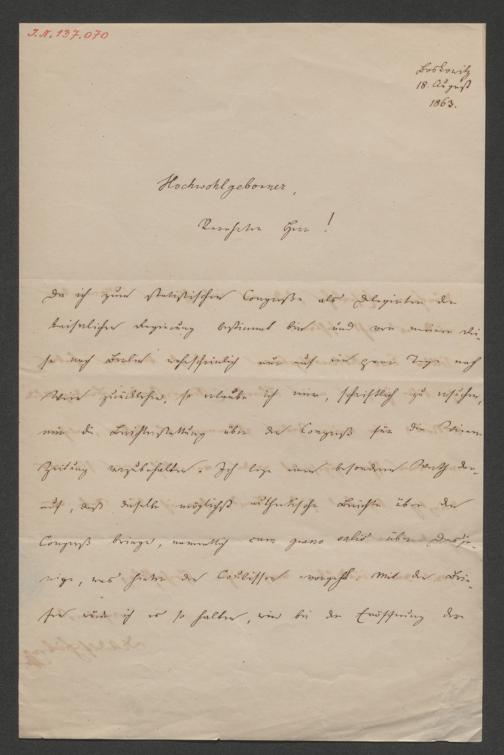 I.N. 137.070
Boskowitz
18. August
1863.
Hochwohlgeborner,
Verehrter Herr!
Da ich zum statistischen Congresse als Delegirter der
kaiserlichen Regierung bestimmt bin und von meiner Rei-
se nach Berlin wahrscheinlich nur auf ein paar Tage nach
Wien zurückkehre, so erlaube ich mir, schriftlich zu ersuchen,
mir die Berichterstattung über den Congreß für die Wiener
Zeitung vorzubehalten. Ich lege einen besonderen Werth da-
rauf, daß dieselbe möglichst authentische Berichte über den
Congreß bringe, namentlich cum grano salis über Dasje-
nige, was hinter den Coulissen vorgeht. Mit den Brie-
fen werde ich es so halten, wie bei der Eröffnung der